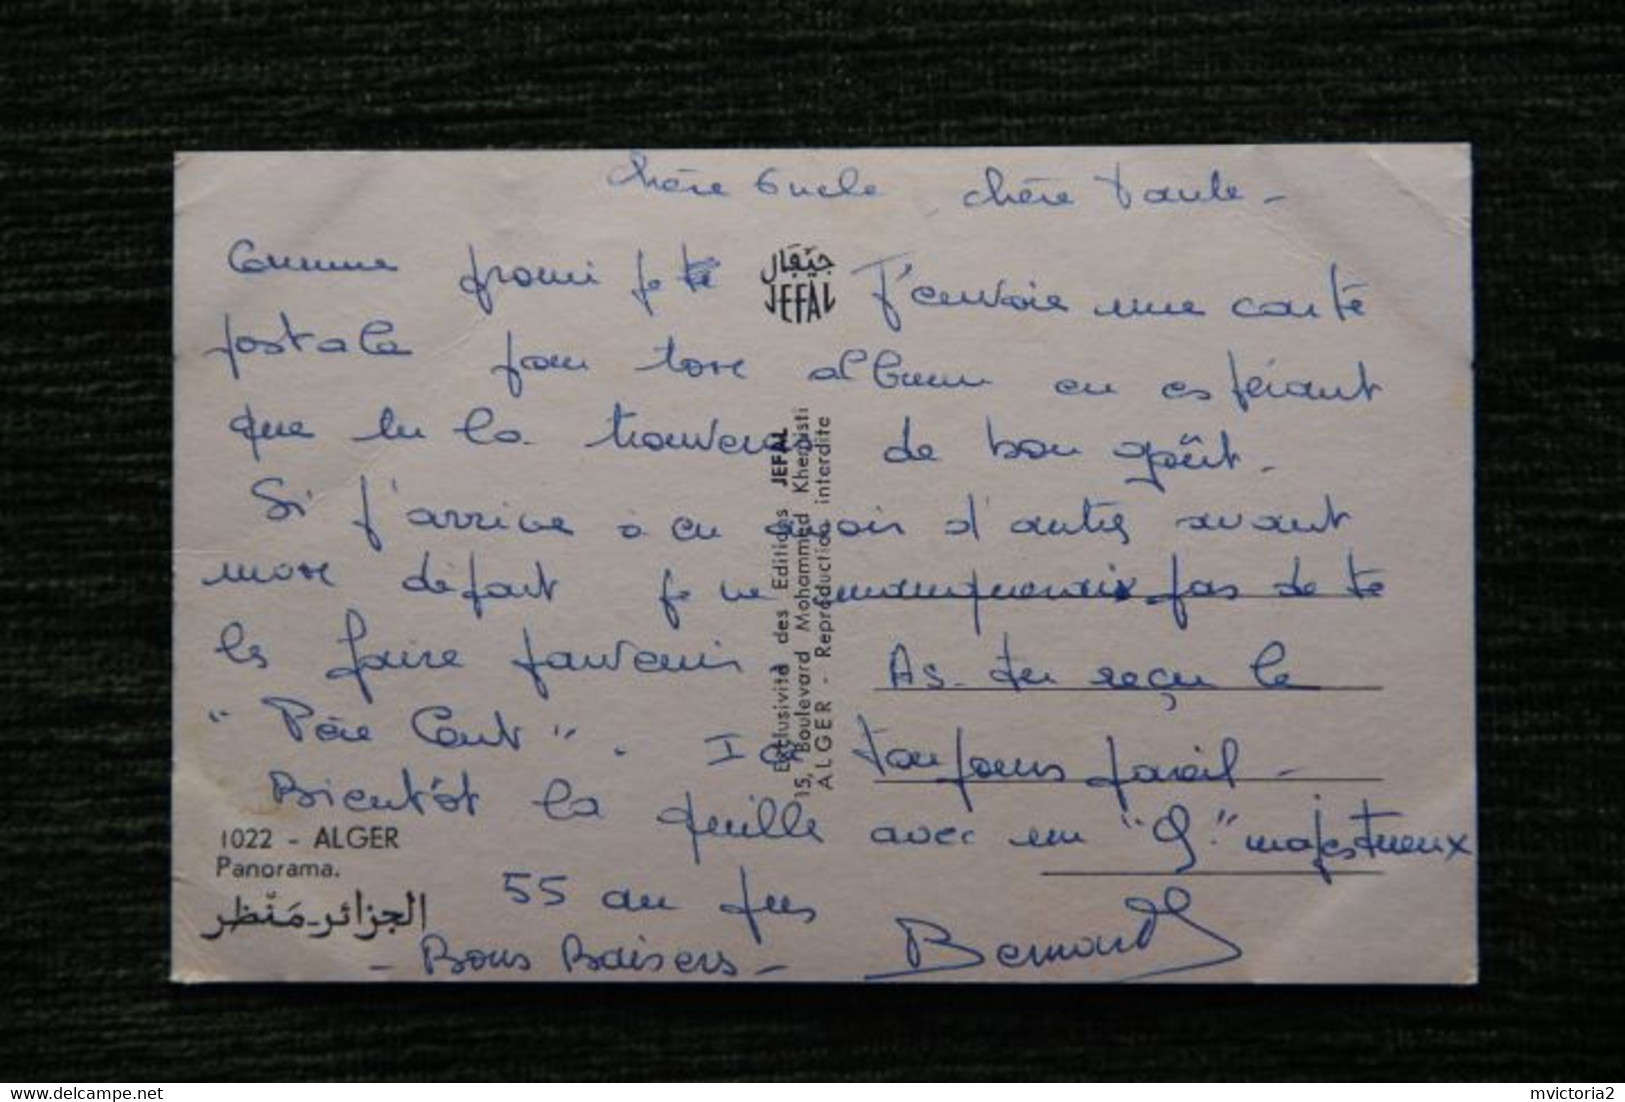 Chère Oncle chère tante -
Comme promi je te J'envoie une carte
postale pour ton album en espérant
que tu la trouveras de bon goût.
Si j'arrive à en avoir d'autres avant
mon départ je ne manquerais pas de te
les faire parvenir. As-tu reçu le
"Père Cent". Ici toujours pareil -
Bientôt la quille avec un "Q" majestueux
55 au jus
- Bons Baisers -
Bernard
جيفال
JEFAL
Exclusivité des Editions JEFAL
15, Boulevard Mohammed Khemisti
ALGER - Reproduction interdite
1022 - ALGER
Panorama.
الجزائر-مَنْظر
mvictoria2
delcampe.net